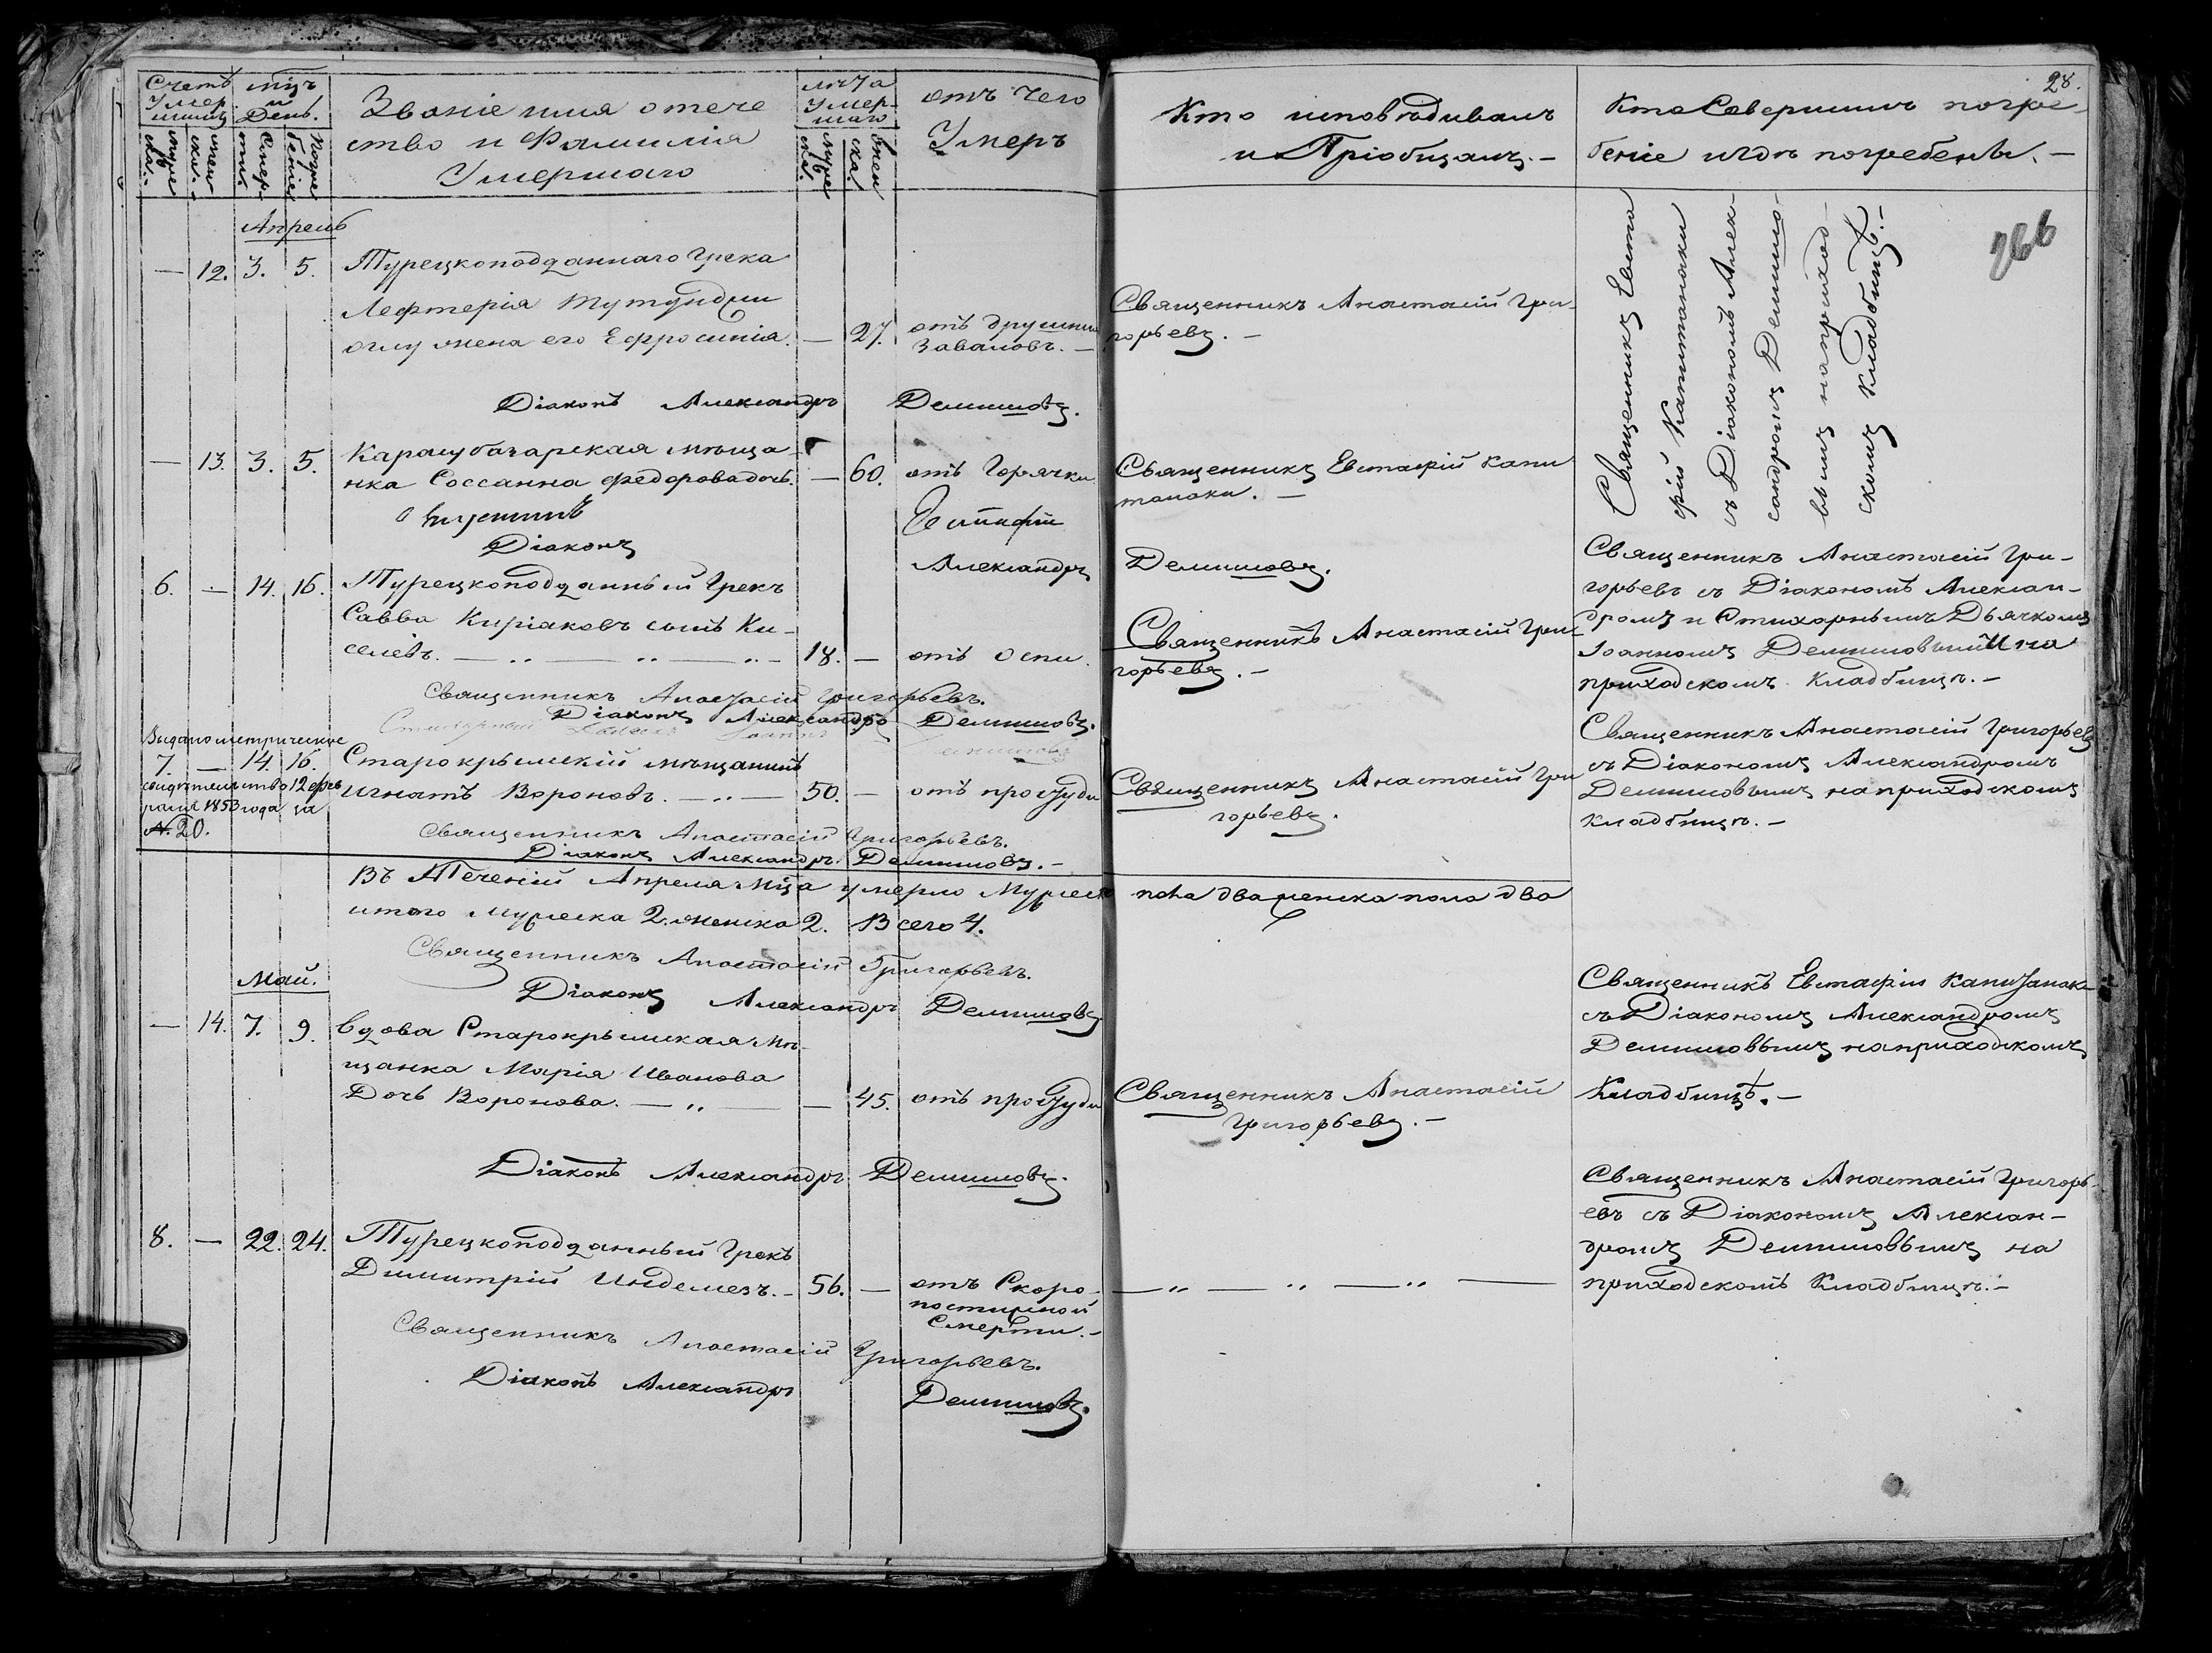 28.
Счетъ Умершихъ
мужеска.
женска.
мцъ и День.
Смерти.
Погребенiе
Званiе имя отече
ство и Фамилiя
Умершаго
лѣта Умершаго
мужеска.
женска.
отъ чего
Умеръ
Кто исповѣдивалъ
и Прiобщалъ.-
Кто Совершилъ погре
бенiе и гдѣ погребены.-
266
Апрель
— 12. 3. 5. Турецкоподданнаго Грека
Лефтерiя Тутунджи
оглу жена его Ефросинiя. — 27. отъ
Заваловъ.—
Священникъ Анастасiй Гри-
горьевъ.—
Священникъ Евста
фiй Капитанаки
съ Дiакономъ Алек-
сандромъ Демишо-
вымъ на приход-
скомъ Кладбищѣ.-
Дiаконъ Александръ Демишовъ.
— 13. 3. 5. Карасубазарская мѣща-
нка Соссанна Федорова дочь. — 60. отъ Горячки.
Священникъ Евстафiй Капи
танаки.—
Евстафiй
Дiаконъ
Александръ Демишовъ.
6. — 14. 16. Турецкоподданный Грекъ
Савва Кирiаковъ сынъ Ки-
селевъ. 18. — отъ Оспи.
Священникъ Анастасiй Гри-
горьевъ.—
Священникъ Анастасiй Гри-
горьевъ съ Дiакономъ Алексан-
дромъ и Стихорнымъ Дьячкомъ
Iоанномъ Демишовыми на
приходскомъ Кладбищѣ.—
Священникъ Анастасiй Григорьевъ.
Дiаконъ Александръ Демишовъ.
Выдано метрическое
свидѣтельство 12 фев
раля 1853 года за
№ 20.
7. — 14. 16. Старокрымскiй мѣщанинъ
Игнатъ Вороновъ. 50. — отъ простуди
Священникъ Анастасiй Гри
горьевъ.
Священникъ Анастасiй Григорьевъ
съ Дiакономъ Александромъ
Демишовымъ на приходскомъ
Кладбищѣ.—
Священникъ Анастасiй Григорьевъ.
Дiаконъ Александръ Демишовъ.—
Въ Теченiи Апреля Мца умерло Мужеска пола два женска пола два
итого мужеска 2. женска 2. Всего 4.
Священникъ Анастасiй Григорьевъ.
Дiаконъ Александръ Демишовъ
Май.
— 14. 7. 9. Вдова Старокрымская мѣ-
щанка Марiя Иванова
Дочь Воронова. — 45. отъ простуди
Священникъ Анастасiй
Григорьевъ.—
Священникъ Евстафiи Капитанак-
съ Дiакономъ Александромъ
Демишовымъ на приходскомъ
Кладбищѣ.—
Дiаконъ Александръ Демишовъ.
8. — 22. 24. Турецкоподданный Грекъ
Димитрiй Индемезъ.- 56. — отъ Скоро-
постижной
Смерти.-
Священникъ Анастасiй Григорь-
евъ съ Дiакономъ Алексан-
дромъ Демишовымъ на
приходскомъ Кладбищѣ.—
Священникъ Анастасiй Григорьевъ.
Дiаконъ Александръ Демишовъ.